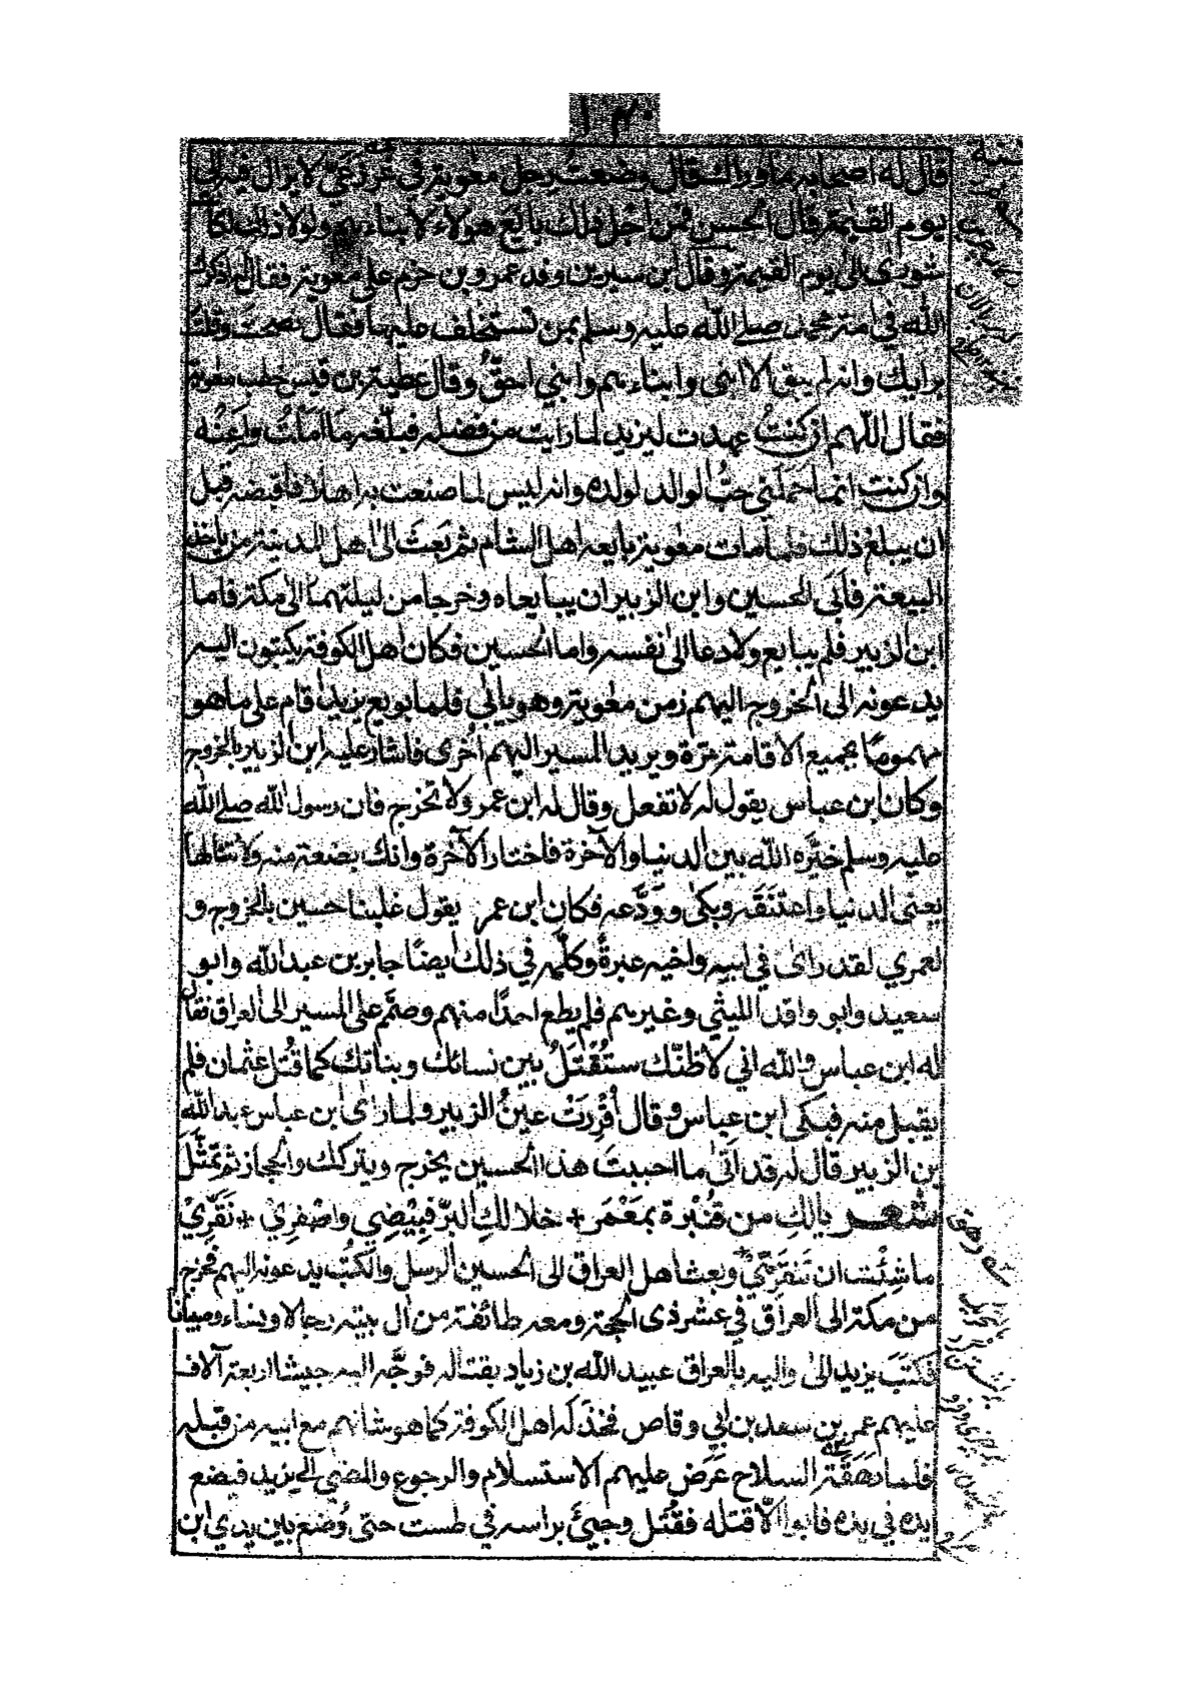 ١٤٠
قال له اصحابه ما وراءك قال وضعت رجل معوية في غرز غيّ لا يزال فيه الى
يوم القيمة قال الحسن فمن اجل ذلك بايع هولاء لابناءهم ولولا ذلك لكا
شورى الى يوم القيمة وقال ابن سيرين وفد عمرو بن حزم على معوية فقال له اذكرك
الله في امة محمد صلى الله عليه وسلم بمن تستخلف عليها فقال نصحت وقلت
برايك وانه لم يبق الا ابني وابناءهم وابني احقّ وقال عطية بن قيس خطب معوية
فقال اللهم ان كنتُ عهدت ليزيد لما رايت من فضله فبلّغه ما املتُ واعِنْه
وان كنت انما حملني حبُّ الوالد لولده وانه ليس لما صنعت به اهلا فاقبضه قبل
ان يبلغ ذلك فلما مات معوية بايعه اهل الشام ثم بَعثَ الى اهل المدينة من ياخذ
البيعة فأبَى الحسين وابن الزبير ان يبايعاه وخرجا من ليلتهما الى مكة فاما
ابن الزبير فلم يبايع ولا دعا الى نفسه واما الحسين فكان اهل الكوفة يكتبون اليه
يدعونه الى الخروج اليهم زمن معوية وهو يأبى فلما بويع يزيد اقام على ما هو
مهمومًا بجميع الاقامة مرة ويريد المسير اليهم اُخرى فاشار عليه ابن الزبير بالخروج
وكان ابن عباس يقول له لا تفعل وقال له ابن عمر ولا تخرج فان رسول الله صلى الله
عليه وسلم خيّره الله بين الدنيا والآخرة فاختار الآخرة وانك بضعة منه ولا تنالها
يعنى الدنيا واعتنَقَه وبكى ووَدَّعه فكان ابن عمر يقول غلبنا حسين بالخروج و
لعمري لقد راى في ابيه واخيه عبرةً وكلّمه في ذلك ايضًا جابر بن عبد الله وابو
سعيد وابو واقد الليثي وغيرهم فلم يطع احدًا منهم وصمّم على المسير الى العراق فقال
له ابن عباس والله اني لاظنّك ستُقتَلُ بين نسائك وبناتك كما قُتل عثمان فلم
يقبل منه فبكى ابن عباس وقال أقْرِرَتْ عينُ الزبير ولما راى ابن عباس عبد الله
بن الزبير قال له قد اتى ما احببتَ هذا الحسين يخرج ويتركك والحجاز ثم تمثّل
شعر يالكِ من قُنْبُرة بمَعْمَر + خلا لكِ البرّ فبِيْضِي واصْفِرِيْ + ونَقِّرِيْ
ما شِئْت ان تُنقّرِيْ وبعث اهل العراق الى الحسين الرسل والكُتُب يدعونه اليهم فخرج
من مكة الى العراق في عشر ذى الحجة ومعه طائفة من اٰل بيته رجالا ونساء وصبيانا
فكتَبَ يزيد الى واليه بالعراق عبيد الله بن زياد بقتاله فوجَّه اليه جيشا اربعة آلاف
عليهم عمر بن سعد بن ابي وقاص فخذَله اهل الكوفة كما هو شانهم مع ابيه من قبله
فلما رهقَه السلاح عَرَض عليهم الاستسلام والرجوع والمضي الى يزيد فيضع
يده في يده فابوا الّا قتله فقُتل وجيئَ براسه في طست حتى وُضع بين يدي ابن